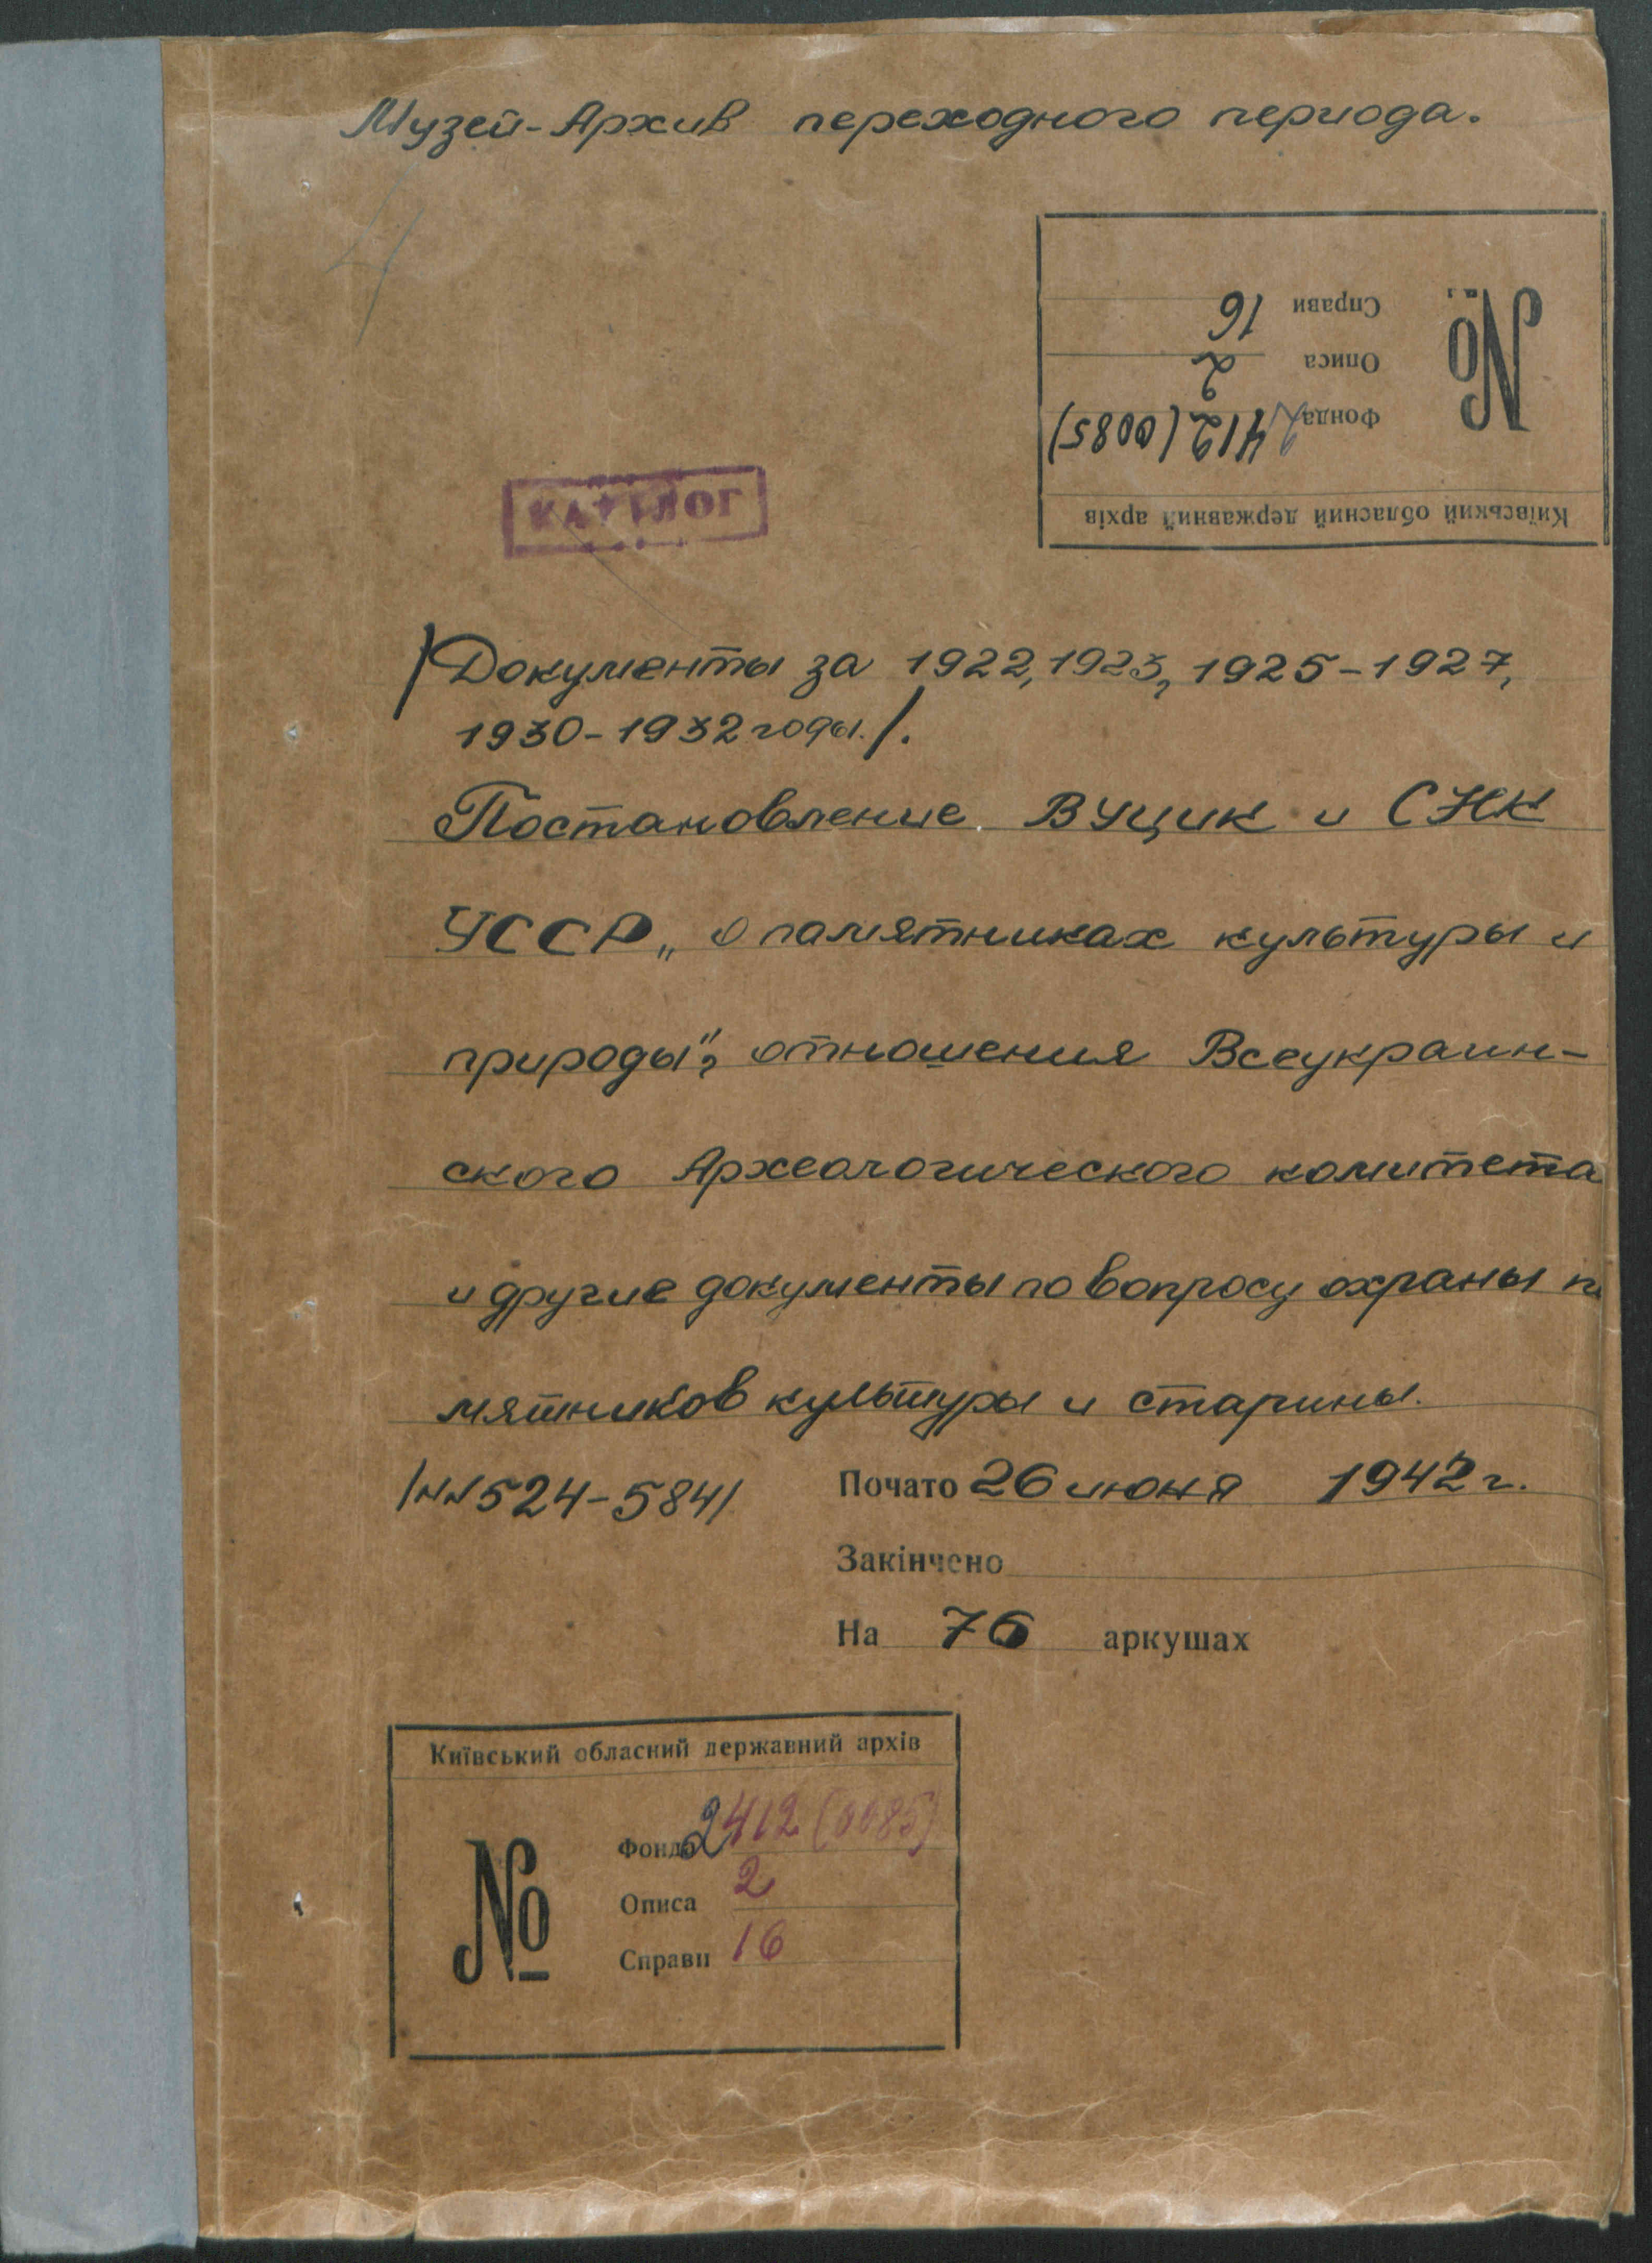 Музей-Архив переходного периода.
4
Київський обласний державний архів
№
Фонда 2412 (0085)
Описа 2
Справи 16
КАТАЛОГ
/Документы за 1922, 1923, 1925-1927,
1930-1932 годы./.
Постановление ВУЦИК и СНК
УССР „о памятниках культуры и
природы“, отношения Всеукраин-
ского Археологического комитета
и другие документы по вопросу охраны па
мятников культуры и старины.
/NN524-584/
Почато 26 июня 1942 г.
Закінчено
На 76 аркушах
Київський обласний державний архів
№
Фонда 2412 (0085)
Описа 2
Справи 16